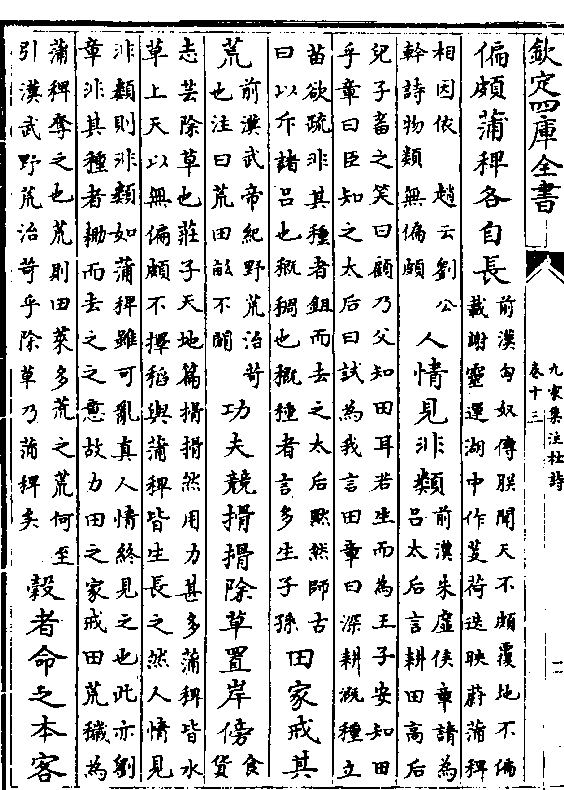 欽定四庫全書
九家集注杜詩
卷十三
二
偏頗蒲稗各自長
前漢匈奴傳朕聞天不頗覆地不偏
載謝靈運湖中作芰荷迭映蔚蒲稗
相因依　趙云劉公
幹詩物類無偏頗
人情見非類
前漢朱虛侯章請為
吕太后言耕田高后
兒子畜之笑曰顧乃父知田耳若生而為王子安知田
乎章曰臣知之太后曰試為我言田章曰深耕穊種立
苗欲疏非其種者鉏而去之太后黙然師古
曰以斥諸吕也穊稠也穊種者言多生子孫
田家戒其
荒
前漢武帝紀野荒治苛
也注曰荒田畝不闢
功夫競搰搰除草置岸傍
食
貨
志芸除草也莊子天地篇搰搰然用力甚多蒲稗皆水
草上天以無偏頗不擇稻與蒲稗皆生長之然人情見
非類則非類如蒲稗雖可亂真人情終見之也此亦劉
章非其種者耡而去之之意故力田之家戒田荒穢為
蒲稗奪之也荒則田萊多荒之荒何至
引漢武野荒治苛乎除草乃蒲稗矣
榖者命之本客